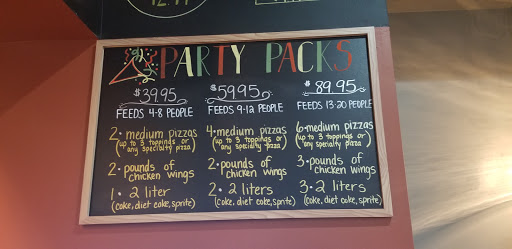 12.99
PARTY PACKS
$39.95
FEEDS 4-8 PEOPLE
2 • medium pizzas
(up to 3 toppings or
any specialty pizza)
2 • pounds of
chicken wings
1 • 2 liter
(coke, diet coke, sprite)
$59.95
FEEDS 9-12 PEOPLE
4 • medium pizzas
(up to 3 toppings or
any specialty pizza)
2 • pounds of
chicken wings
2 • 2 liters
(coke, diet coke, sprite)
$89.95
FEEDS 13-20 PEOPLE
6 • medium pizzas
(up to 3 toppings or
any specialty pizza)
3 • pounds of
chicken wings
3 • 2 liters
(coke, diet coke, sprite)